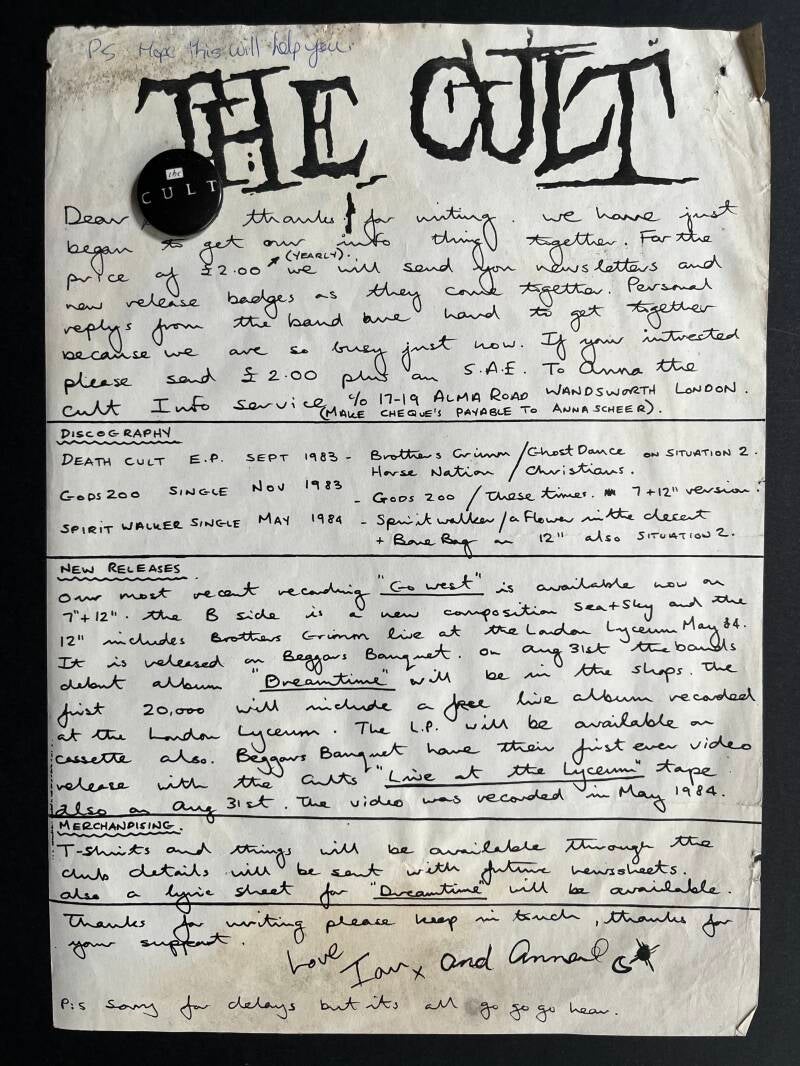 PS Hope this will help you.
THE CULT
the
CULT
Dear thanks for writing. we have just
began to get our info thing together. For the
(YEARLY).
price of £2.00 we will send you newsletters and
new release badges as they come together. Personal
replys from the band are hard to get together
because we are so busy just now. If your intrested
please send £2.00 plus an S.A.E. To Anna the
Cult Info service c/o 17-19 ALMA ROAD WANDSWORTH LONDON.
(MAKE CHEQUE'S PAYABLE TO ANNA SCHEER).
DISCOGRAPHY
DEATH CULT E.P. SEPT 1983 - Brothers Grimm / Ghost Dance ON SITUATION 2.
Horse Nation / Christians.
GODS ZOO SINGLE NOV 1983 - GODS ZOO / These times. 7+12" version.
SPIRIT WALKER SINGLE MAY 1984 - Spirit walker / a Flower in the desert
+ Bone Bag on 12" also SITUATION 2.
NEW RELEASES.
Our most recent recording "Go west" is available now on
7"+12". the B side is a new composition Sea+Sky and the
12" includes Brothers Grimm live at the London Lyceum May 84.
It is released on Beggars Banquet. on Aug 31st the bands
debut album "Dreamtime" will be in the shops. The
first 20,000 will include a free live album recorded
at the London Lyceum. The L.P. will be available on
cassette also. Beggars Banquet have their first ever video
release with the Cults "Live at the Lyceum" tape
also on Aug 31st. The video was recorded in May 1984.
MERCHANDISING.
T-shirts and things will be available through the
club details will be sent with future newssheets.
also a lyric sheet for "Dreamtime" will be available.
Thanks for writing please keep in touch, thanks for
your support.
Love Ian x and Anna
P:S sorry for delays but its all go go go hear.